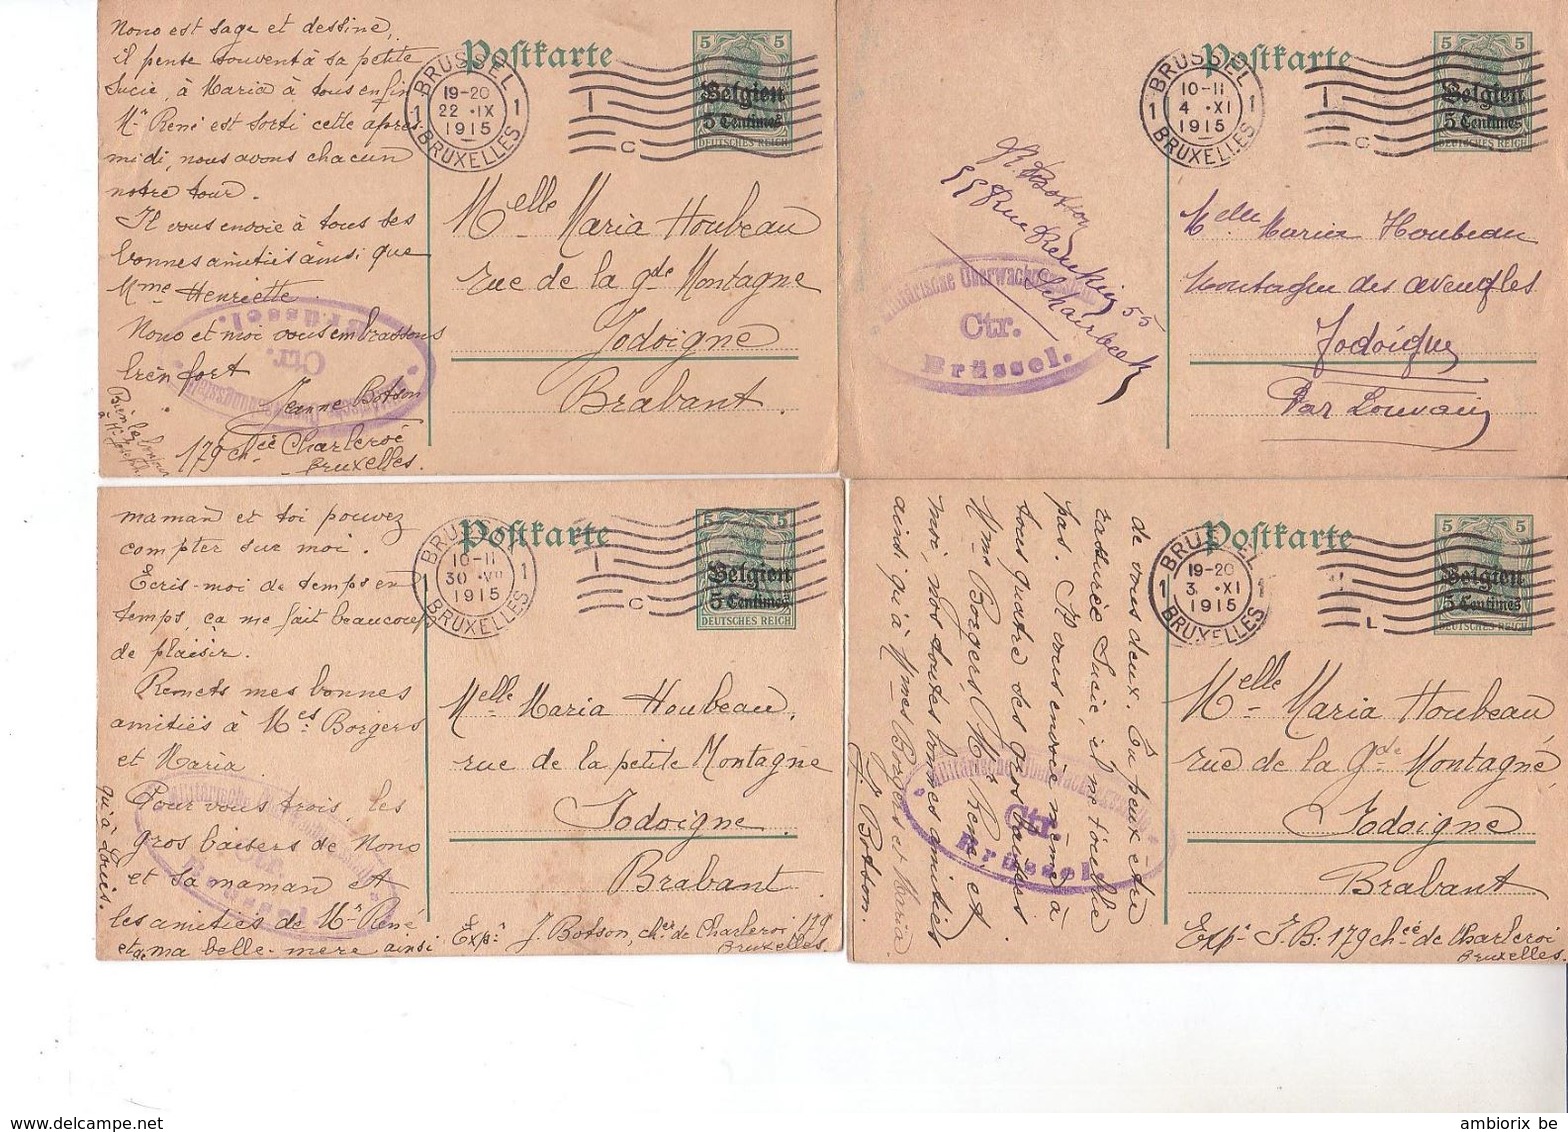 Nono est sage et dessine,
il pense souvent à sa petite
Lucie, à Maria à tous enfin
Mr René est sorti cette après
midi, nous avons chacun
notre tour.
Il vous envoie à tous ses
bonnes amitiés ainsi que
Mme Henriette.
Nono et moi vous embrassons
bien fort
Jeanne Botson
179 chée Charleroi
Bruxelles.
Postkarte
BRÜSSEL
1 19-20 1
22 .IX
1915
BRUXELLES
C
5 5
Belgien
5 Centimes
DEUTSCHES REICH
Melle Maria Houbeau
rue de la gde Montagne
Jodoigne
Brabant.
Ctr.
Brüssel.
Postkarte
BRÜSSEL
1 10-11 1
4 .XI
1915
BRUXELLES
C
5 5
Belgien
5 Centimes
DEUTSCHES REICH
Botson
55 Rue Renkin 55
Schaerbeek
Militärische Überwachungsstelle
Ctr.
Brüssel.
Melle Maria Houbeau
Montagne des aveugles
Jodoigne
Par Louvain
maman et toi pouvez
compter sur moi.
Écris-moi de temps en
temps, ça me fait beaucoup
de plaisir.
Remets mes bonnes
amitiés à Mes Borgers
et Maria
Pour vous trois, les
gros baisers de Nono
et sa maman et
les amitiés de Mr René
et ma belle-mère ainsi
qu'à Louis.
Postkarte
BRÜSSEL
10-11 1
30 .VII
1915
BRUXELLES
C
5 5
Belgien
5 Centimes
DEUTSCHES REICH
Melle Maria Houbeau,
rue de la petite Montagne
Jodoigne
Brabant
Expr J. Botson, chée de Charleroi, 179
Bruxelles.
de vous deux. Tu peux être
rassurée Lucie, il ne t'oublie
pas. Il vous envoie même à
tous quatre des gros baisers
Mme Borgers, Mr René et
moi, nos toutes bonnes amitiés
ainsi qu'à Mmes Borgers et Maria
J. Botson.
Militärische Überwachungsstelle
Ctr.
Brüssel.
Postkarte
BRÜSSEL
1 19-20 1
3 .XI
1915
BRUXELLES
L
5 5
Belgien
5 Centimes
DEUTSCHES REICH
Melle Maria Houbeau
rue de la Gde Montagne,
Jodoigne
Brabant
Expr J.B. 179 chée de Charleroi
Bruxelles.
ambiorix be